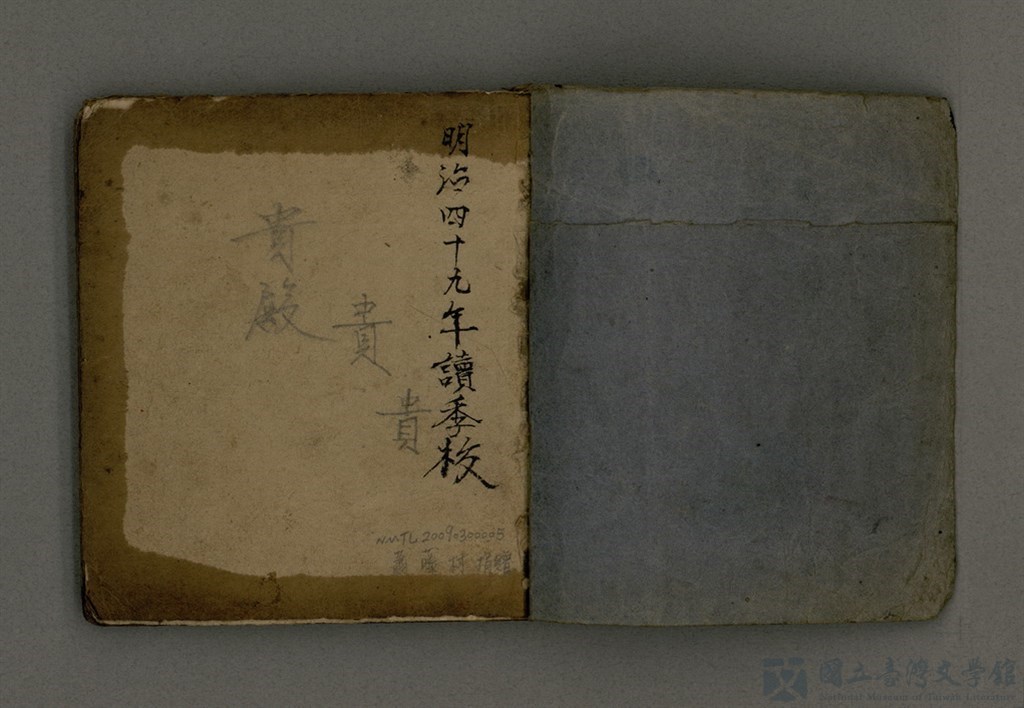 明治四十九年讀季校
貴
貴
貴殿
NMTL 20090300005
捐贈
國立臺灣文學館
National Museum of Taiwan Literature